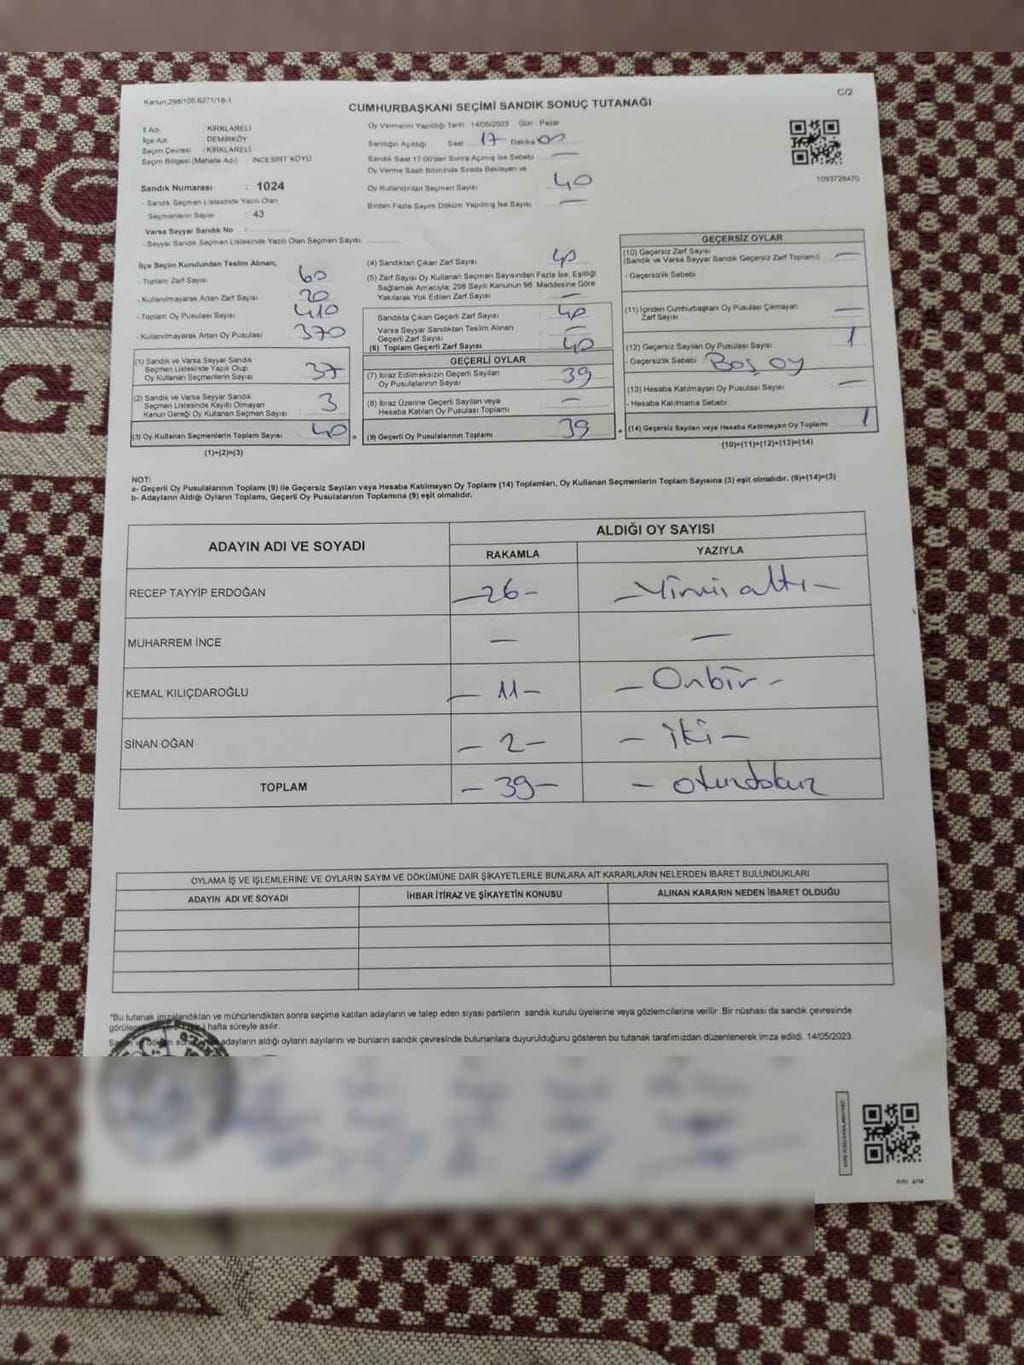 Kanun:298/105;6271/18-1
C/2
CUMHURBAŞKANI SEÇİMİ SANDIK SONUÇ TUTANAĞI
İl Adı : KIRKLARELİ
İlçe Adı : DEMİRKÖY
Seçim Çevresi : KIRKLARELİ
Seçim Bölgesi (Mahalle Adı) : İNCESIRT KÖYÜ
Sandık Numarası : 1024
- Sandık Seçmen Listesinde Yazılı Olan
Seçmenlerin Sayısı : 43
Varsa Seyyar Sandık No :
- Seyyar Sandık Seçmen Listesinde Yazılı Olan Seçmen Sayısı
Oy Vermenin Yapıldığı Tarih : 14/05/2023 Gün : Pazar
Sandığın Açıldığı Saat 17 Dakika 00
Sandık Saat 17:00'den Sonra Açılmış İse Sebebi : —
Oy Verme Saati Bitiminde Sırada Bekleyen ve
Oy Kullandırılan Seçmen Sayısı 40
Birden Fazla Sayım Döküm Yapılmış İse Sayısı —
1093728470
İlçe Seçim Kurulundan Teslim Alınan;
- Toplam Zarf Sayısı : 60
- Kullanılmayarak Artan Zarf Sayısı : 20
- Toplam Oy Pusulası Sayısı : 410
- Kullanılmayarak Artan Oy Pusulası : 370
(1) Sandık ve Varsa Seyyar Sandık
Seçmen Listesinde Yazılı Olup
Oy Kullanan Seçmenlerin Sayısı : 37
(2) Sandık ve Varsa Seyyar Sandık
Seçmen Listesinde Kayıtlı Olmayan
Kanun Gereği Oy Kullanan Seçmen Sayısı : 3
(3) Oy Kullanan Seçmenlerin Toplam Sayısı : 40
(1)+(2)=(3)
(4) Sandıktan Çıkan Zarf Sayısı : 40
(5) Zarf Sayısı Oy Kullanan Seçmen Sayısından Fazla İse, Eşitliği
Sağlamak Amacıyla; 298 Sayılı Kanunun 98. Maddesine Göre
Yakılarak Yok Edilen Zarf Sayısı : —
Sandıkta Çıkan Geçerli Zarf Sayısı : 40
Varsa Seyyar Sandıktan Teslim Alınan
Geçerli Zarf Sayısı : —
(6) Toplam Geçerli Zarf Sayısı : 40
GEÇERLİ OYLAR
(7) İtiraz Edilmeksizin Geçerli Sayılan
Oy Pusulalarının Sayısı : 39
(8) İtiraz Üzerine Geçerli Sayılan veya
Hesaba Katılan Oy Pusulası Toplamı : —
(9) Geçerli Oy Pusulalarının Toplamı : 39
GEÇERSİZ OYLAR
(10) Geçersiz Zarf Sayısı
(Sandık ve Varsa Seyyar Sandık Geçersiz Zarf Toplamı) : —
- Geçersizlik Sebebi :
(11) İçinden Cumhurbaşkanı Oy Pusulası Çıkmayan
Zarf Sayısı : —
(12) Geçersiz Sayılan Oy Pusulası Sayısı : 1
- Geçersizlik Sebebi : Boş oy
(13) Hesaba Katılmayan Oy Pusulası Sayısı : —
- Hesaba Katılmama Sebebi :
(14) Geçersiz Sayılan veya Hesaba Katılmayan Oy Toplamı : 1
(10)+(11)+(12)+(13)=(14)
NOT:
a- Geçerli Oy Pusulalarının Toplamı (9) ile Geçersiz Sayılan veya Hesaba Katılmayan Oy Toplamı (14) Toplamları, Oy Kullanan Seçmenlerin Toplam Sayısına (3) eşit olmalıdır. (9)+(14)=(3)
b- Adayların Aldığı Oyların Toplamı, Geçerli Oy Pusulalarının Toplamına (9) eşit olmalıdır.
ADAYIN ADI VE SOYADI
ALDIĞI OY SAYISI
RAKAMLA YAZIYLA
RECEP TAYYİP ERDOĞAN —26— —Yirmi altı—
MUHARREM İNCE — —
KEMAL KILIÇDAROĞLU —11— —Onbir—
SİNAN OĞAN —2— —iki—
TOPLAM —39— —otuzdokuz
OYLAMA İŞ VE İŞLEMLERİNE VE OYLARIN SAYIM VE DÖKÜMÜNE DAİR ŞİKAYETLERLE BUNLARA AİT KARARLARIN NELERDEN İBARET BULUNDUKLARI
ADAYIN ADI VE SOYADI İHBAR İTİRAZ VE ŞİKAYETİN KONUSU ALINAN KARARIN NEDEN İBARET OLDUĞU
*Bu tutanak imzalandıktan ve mühürlendikten sonra seçime katılan adayların ve talep eden siyasi partilerin sandık kurulu üyelerine veya gözlemcilerine verilir. Bir nüshası da sandık çevresinde
hafta süreyle asılır.
adayların aldığı oyların sayılarını ve bunların sandık çevresinde bulunanlara duyurulduğunu gösteren bu tutanak tarafımızdan düzenlenerek imza edildi. 14/05/2023